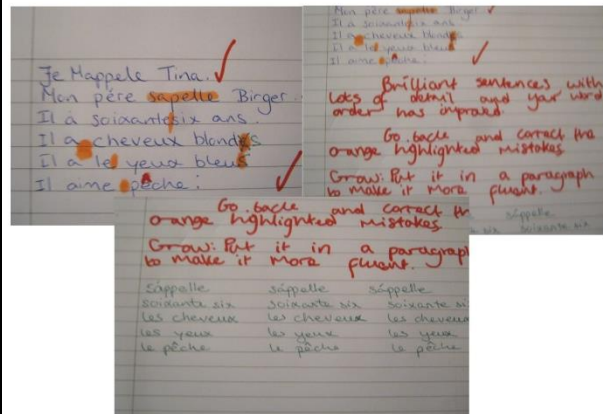 Je Mappele Tina.
Mon pére sapelle Birger.
Il à soixantesix ans.
Il a cheveux blondes
Il a les yeux bleus
Il aime pêche.
Mon père sapelle Birger
Il à soixantesix ans
Il a cheveux blondes
Il a les yeux bleus
Il aime pêche.
Brilliant sentences with
lots of detail and your word
order has improved.
Go back and correct the
orange highlighted mistakes
Grow: Put it in a paragraph
to make it more fluent.
sáppelle
six soixante six
Go back and correct th
orange highlighted mistakes
Grow: Put it in a paragraph
to make it more fluent.
sáppelle sáppelle sáppelle
soixante six soixante six soixante si
les cheveux les cheveux les cheveux
les yeux les yeux les yeux
le pêche le pêche le pêche